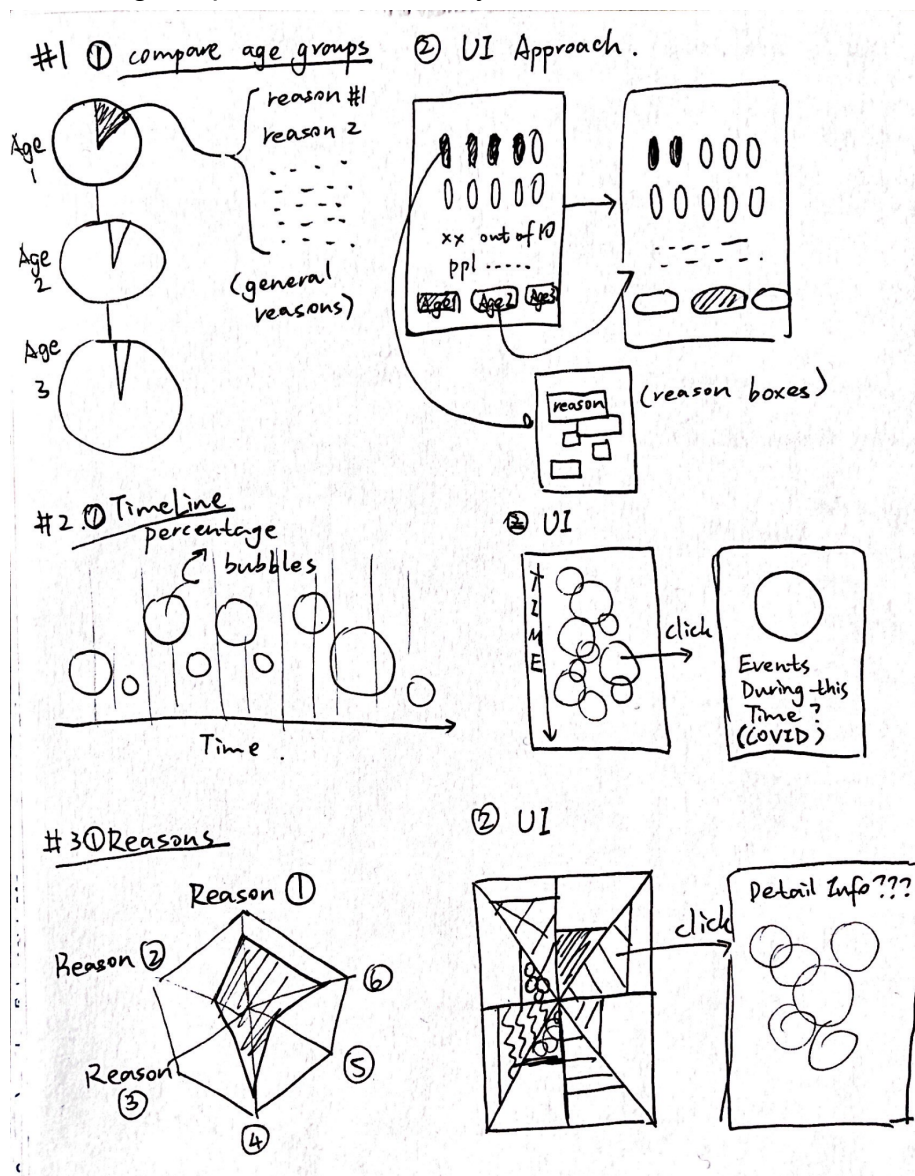 #1 ① compare age groups
Age 1
Age 2
Age 3
reason #1
reason 2
(general
reasons)
② UI Approach.
xx out of 10
ppl .....
Age1 Age2 Age3
reason
(reason boxes)
#2. ① TimeLine
percentage
bubbles
Time
② UI
TIME
click
Events
During this
Time?
(COVID)
#3 ① Reasons
Reason ①
Reason ②
Reason ③
④
⑤
⑥
② UI
click
Detail Info???